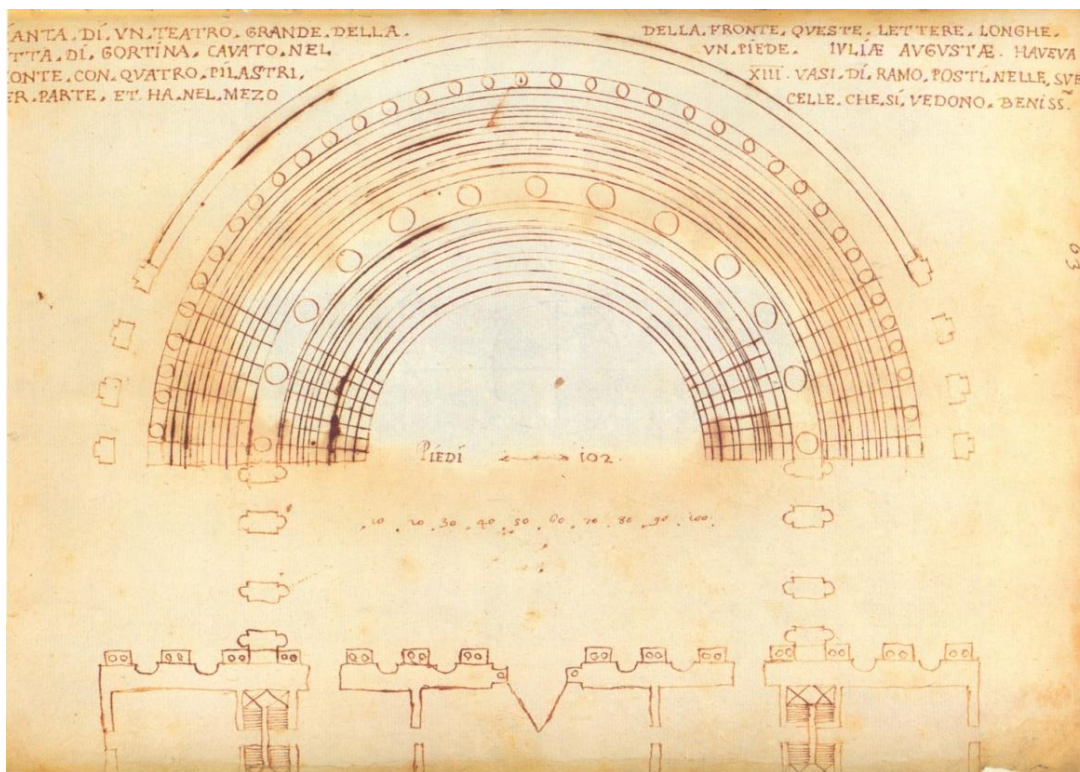 ANTA. DI. VN. TEATRO. GRANDE. DELLA.
TTA. DI. GORTINA. CAVATO. NEL
ONTE. CON. QVATRO. PILASTRI,
ER. PARTE, ET. HA. NEL. MEZO
DELLA. FRONTE, QVESTE. LETTERE. LONGHE.
VN. PIEDE. IVLIÆ AVGVSTÆ. HAVEVA
XIII. VASI. DI. RAMO. POSTI. NELLE, SVE
CELLE. CHE. SI. VEDONO. BENISS.
63
PIEDI 102.
10 20 30 40 50 60 70 80 90 100